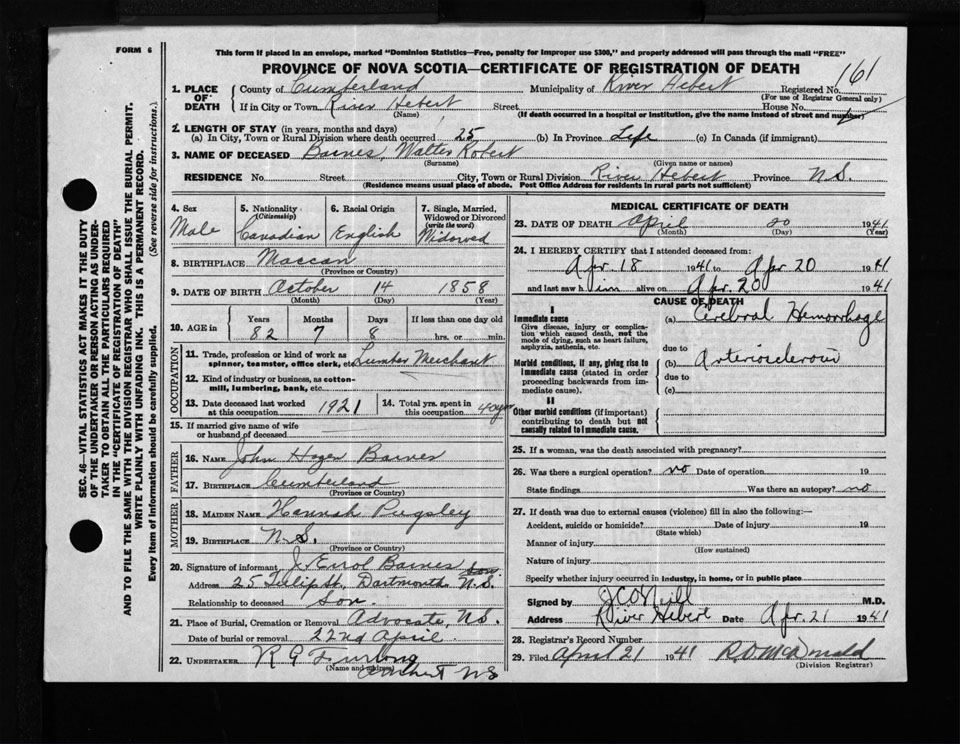 FORM 6
This form if placed in an envelope, marked "Dominion Statistics—Free, penalty for improper use $300," and properly addressed will pass through the mail "FREE"
PROVINCE OF NOVA SCOTIA—CERTIFICATE OF REGISTRATION OF DEATH
161
1. PLACE OF DEATH
County of Cumberland Municipality of River Hebert Registered No.
(For use of Registrar General only)
If in City or Town River Hebert Street House No.
(Name) (If death occurred in a hospital or institution, give the name instead of street and number)
2. LENGTH OF STAY (in years, months and days)
(a) In City, Town or Rural Division where death occurred 25 (b) In Province Life (c) In Canada (if immigrant)
3. NAME OF DECEASED Barnes, Walter Robert
(Surname) (Given name or names)
RESIDENCE No. Street City, Town or Rural Division River Hebert Province N.S.
(Residence means usual place of abode. Post Office Address for residents in rural parts not sufficient)
4. Sex
Male
5. Nationality (Citizenship)
Canadian
6. Racial Origin
English
7. Single, Married, Widowed or Divorced (write the word)
Widowed
8. BIRTHPLACE Maccan
(Province or Country)
9. DATE OF BIRTH October 14 1858
(Month) (Day) (Year)
10. AGE in
Years Months Days If less than one day old
82 7 8 hrs. or min.
OCCUPATION
11. Trade, profession or kind of work as spinner, teamster, office clerk, etc. Lumber Merchant
12. Kind of industry or business, as cotton-mill, lumbering, bank, etc.
13. Date deceased last worked at this occupation 1921
14. Total yrs. spent in this occupation 40 yrs
15. If married give name of wife or husband of deceased
FATHER
16. NAME John Hagen Barnes
17. BIRTHPLACE Cumberland
(Province or Country)
MOTHER
18. MAIDEN NAME Hannah Pugsley
19. BIRTHPLACE N.S.
(Province or Country)
20. Signature of informant J. Errol Barnes son
Address 25 Tulip St, Dartmouth N.S.
Relationship to deceased Son.
21. Place of Burial, Cremation or Removal Advocate, N.S.
Date of burial or removal 22nd April.
22. UNDERTAKER R G Furlong
(Name and address)
Amherst NS
MEDICAL CERTIFICATE OF DEATH
23. DATE OF DEATH April 20 1941
(Month) (Day) (Year)
24. I HEREBY CERTIFY that I attended deceased from:
Apr. 18 1941 to Apr 20 1941
and last saw him alive on Apr. 20 1941
CAUSE OF DEATH
I
Immediate cause (a) Cerebral Hemorrhage
Give disease, injury or complication which caused death, not the mode of dying, such as heart failure, asphyxia, asthenia, etc.
due to
Morbid conditions, if any, giving rise to immediate cause (stated in order proceeding backwards from immediate cause).
(b) Arteriosclerosis
due to
(c)
II
Other morbid conditions (if important) contributing to death but not causally related to immediate cause.
25. If a woman, was the death associated with pregnancy?
26. Was there a surgical operation? no Date of operation 19
State findings Was there an autopsy? no
27. If death was due to external causes (violence) fill in also the following:—
Accident, suicide or homicide? Date of injury 19
(State which)
Manner of injury
(How sustained)
Nature of injury
Specify whether injury occurred in industry, in home, or in public place
Signed by J C O'Neill M.D.
Address River Hebert Date Apr. 21 1941
28. Registrar's Record Number
29. Filed April 21 1941 R. O. McDonald
(Division Registrar)
SEC. 46—VITAL STATISTICS ACT MAKES IT THE DUTY
OF THE UNDERTAKER OR PERSON ACTING AS UNDER-
TAKER TO OBTAIN ALL THE PARTICULARS REQUIRED
IN THE "CERTIFICATE OF REGISTRATION OF DEATH"
AND TO FILE THE SAME WITH THE DIVISION REGISTRAR WHO SHALL ISSUE THE BURIAL PERMIT.
WRITE PLAINLY WITH UNFADING INK. THIS IS A PERMANENT RECORD.
Every item of information should be carefully supplied. (See reverse side for instructions.)